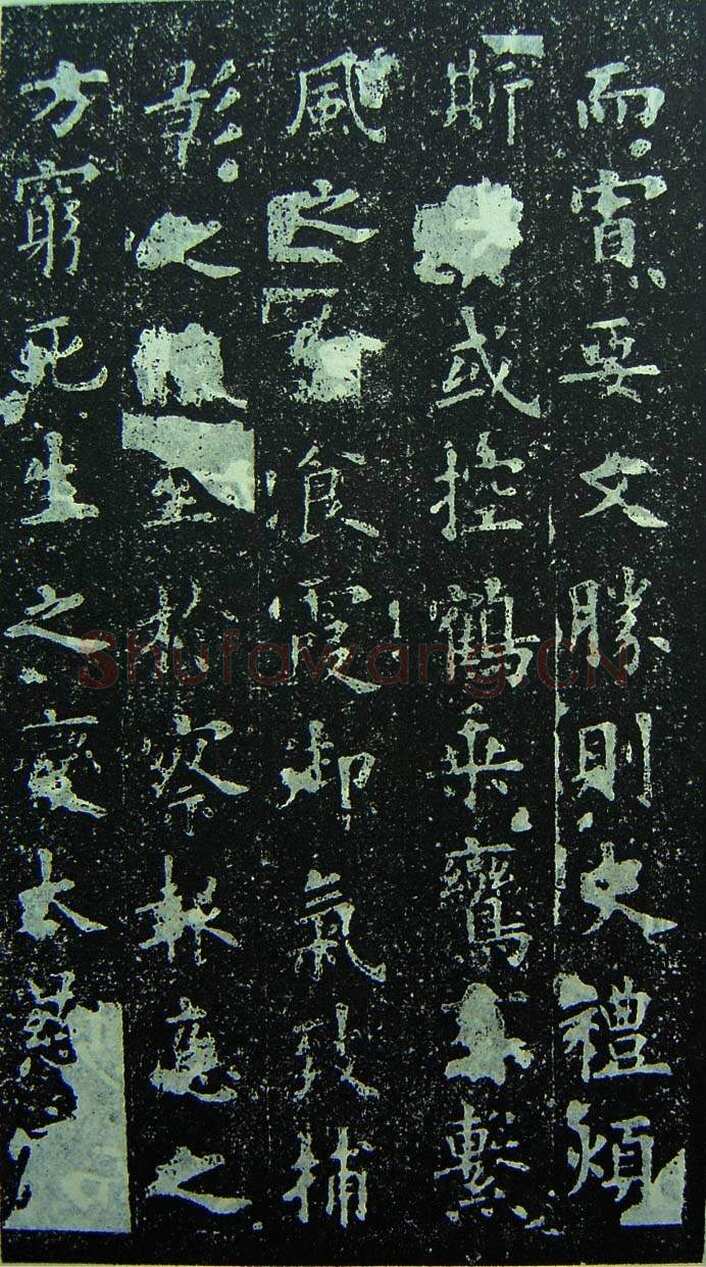 而寡要文勝則史禮煩
斯或控鶴乘鸞繫
風之飡霞御氣致捕
影之至於察報應之
方窮死生之變大慈
Shufawang.CN